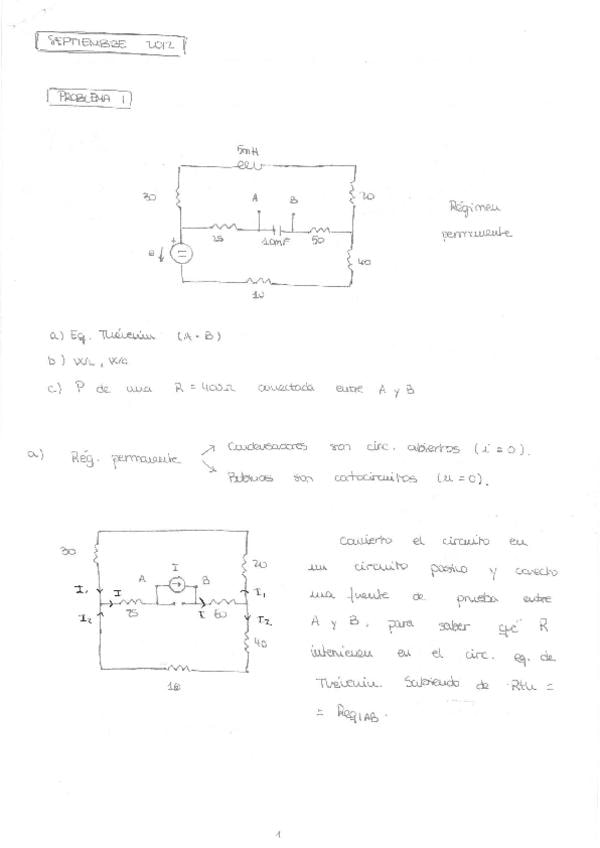 SEPTIEMBRE 2012
PROBLEMA 1
5mH
30
A
B
20
25
10mF
50
+
e
40
10
Régimen
permanente
a) Eq. Thévenin (A-B)
b) WL, Wc
c) P de una R = 400Ω conectada entre A y B
a) Rég. permanente
Condensadores son circ. abiertos (i = 0).
Bobinas son cortocircuitos (u = 0).
30
I
A
B
20
I1
I
I
I1
I2
25
50
I2
40
10
Convierto el circuito en
un circuito pasivo y conecto
una fuente de prueba entre
A y B, para saber qué R
intervienen en el circ. eq. de
Thévenin. Sabiendo de Rth =
= Req|AB.
1